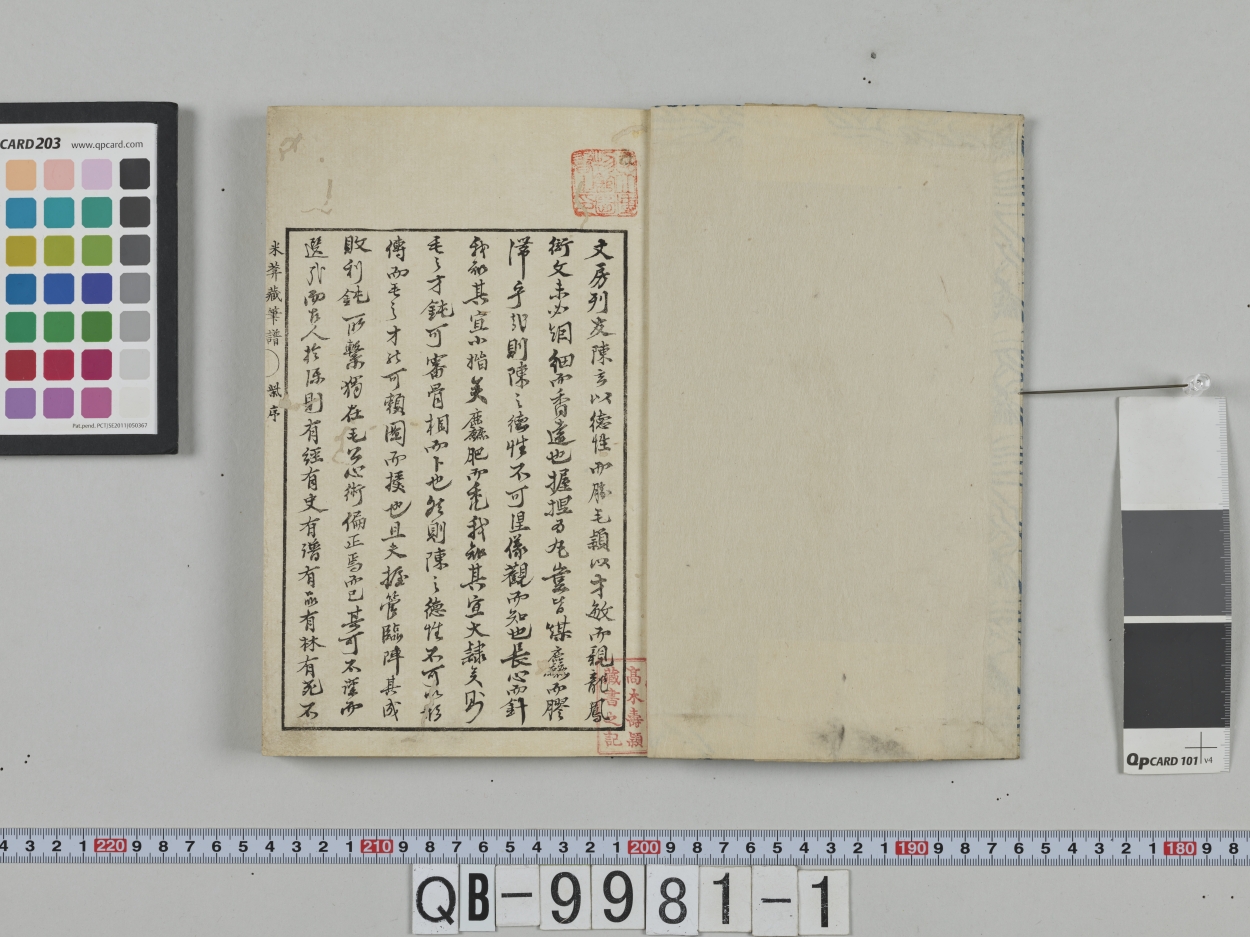 文房列友陳玄以德性而勝毛穎以才敏而現龍鳳
銜文未必烟細而香遠也握捏為丸豈皆煤麤而膠
滯乎哉則陳之德性不可但儀觀而知也長心而針
我知其宜小楷矣麤肥而禿我知其宜大隸矣則
毛之才鈍可審骨相而卜也然則陳之德性不可以形
傳而毛之才能可賴圖而援也且夫握管臨陣其成
敗利鈍一所繫獨在毛公心術偏正焉而已其可不謹而
選乎而古人於 別有經有史有譜有 有林有 不
米葊藏筆譜 序
高木壽穎
藏書之記
CARD 203 www.qpcard.com
Pat.pend. PCT/SE2011/050367
QpCARD 101 v4
4 3 2 1 220 9 8 7 6 5 4 3 2 1 210 9 8 7 6 5 4 3 2 1 200 9 8 7 6 5 4 3 2 1 190 9 8 7 6 5 4 3 2 1 180 9 8
QB-9981-1